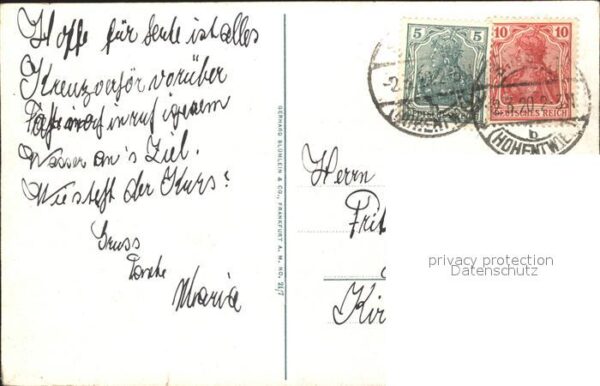 Hoffe für heute ist alles
vorüber
in ruhigem
Wasser an's Ziel.
Wie steht der Kurs?
Gruss
Maria
GERHARD BLÜMLEIN & CO., FRANKFURT A. M. NO. 21/7
5 5
10 10
DEUTSCHES REICH
(HOHENTWIEL
b
(HOHENTWIE
Herrn
Frit
Kir
privacy protection
Datenschutz